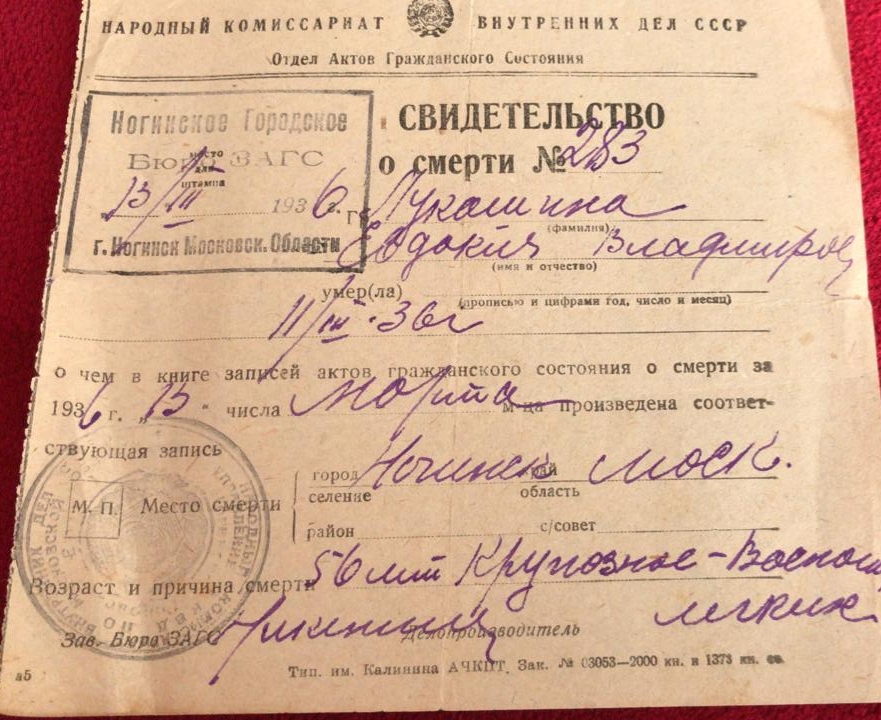 НАРОДНЫЙ КОМИССАРИАТ ВНУТРЕННИХ ДЕЛ СССР
Отдел Актов Гражданского Состояния
Ногинское Городское
Бюро ЗАГС
место
для
штампа
13/III 1936 г.
г. Ногинск Московск. Области
СВИДЕТЕЛЬСТВО
о смерти № 283
Гр Лукашина
(фамилия)
Евдокия Владимиров
(имя и отчество)
умер(ла)
(прописью и цифрами год, число и месяц)
11/III-36г
о чем в книге записей актов гражданского состояния о смерти за
1936 г. „13" числа Марта м-ца произведена соответ-
ствующая запись
М. П. Место смерти
город Ногинск край Моск.
селение область
район с/совет
Возраст и причина смерти 56 лет Крупозное-Воспал
легких
Зав. Бюро ЗАГС Делопроизводитель
а5
Тип. им. Калинина АЧКПТ. Зак. № 03053—2000 кн. и 1373 кн. со.